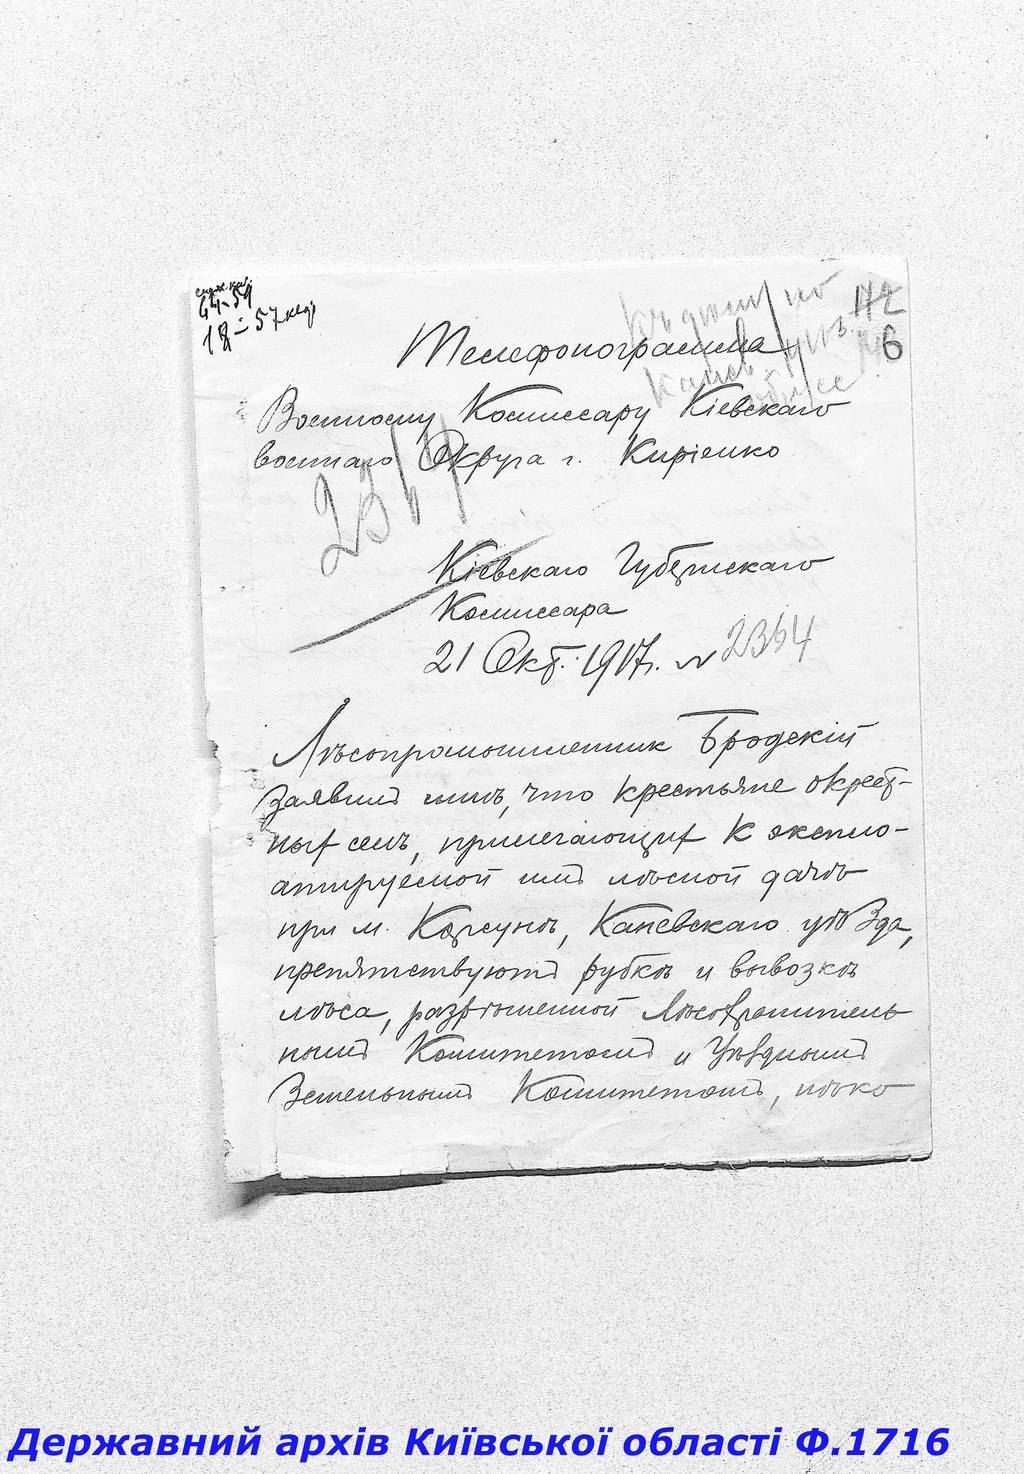 44-54
18-57
172
6
Телефонограмма
Военному Комиссару Кіевскаго
военнаго Округа г. Киріенко
Кіевскаго Губернскаго
Комиссара
21 Окт. 1917г. №
Лѣсопромышленник Бродскій
заявил мнѣ, что крестьяне окрест-
ных селъ, прилегающих к эксплo-
атируемой им лѣсной дачѣ
при м. Корсунѣ, Каневскаго уѣзда,
препятствуют рубкѣ и вывозкѣ
лѣса, разрѣшенной Лѣсохранитель
ным Комитетом и Уѣздным
Земельным Комитетом,
Державний архів Київської області Ф.1716